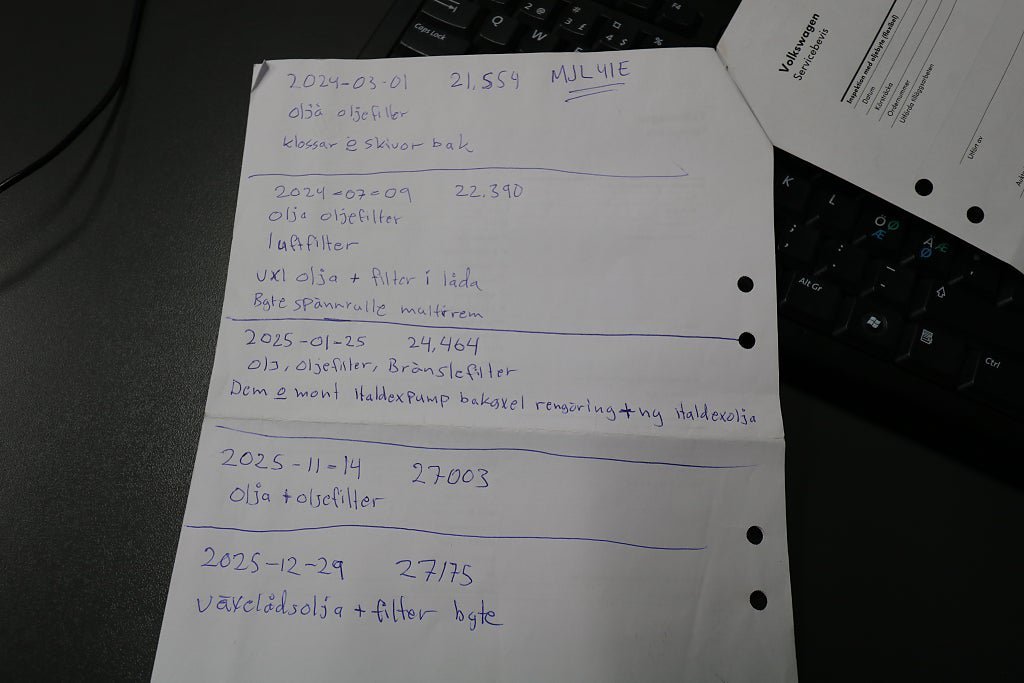 2024-03-01 21,554 MJL41E
oljà oljefilter
klossar o skivor bak
2024-07-09 22.390
olja oljefilter
luftfilter
vxl olja + filter i låda
Byte spännrulle multirem
2025-01-25 24,464
olj, oljefilter, Bränslefilter
Dem o mont Haldexpump bakaxel rengöring + ny Haldexolja
2025-11-14 27003
olja + oljefilter
2025-12-29 27175
växelådsolja + filter byte
Volkswagen
Servicebevis
Inspektion med oljebyte (flexibel)
Datum
Körsträcka
Ordernummer
Utförda tilläggsarbeten
Utfört av
Caps Lock
Q
W
2 @
# 3 £
¤ 4 $
%
F4
K
L
Ö Ø Æ
Ä Æ Ø
Alt Gr
Ctrl